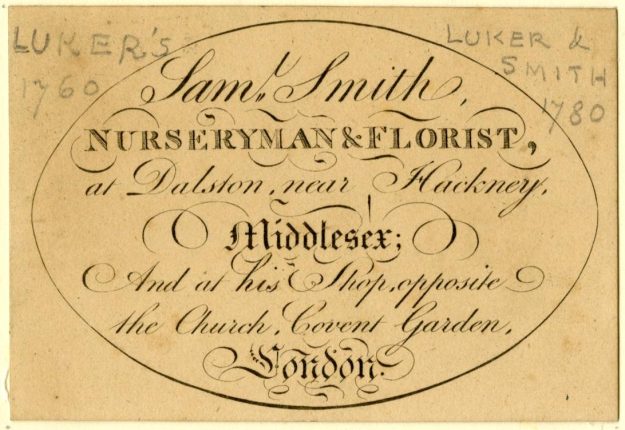 LUKER'S
1760
LUKER &
SMITH
1780
Sam.l Smith,
NURSERYMAN & FLORIST,
at Dalston, near Hackney,
Middlesex;
And at his Shop, opposite
the Church, Covent Garden,
London.